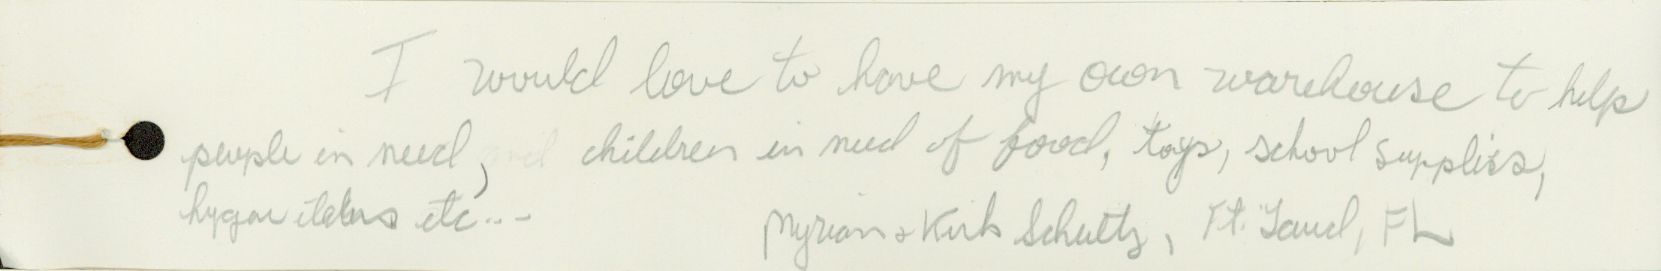 I would love to have my own warehouse to help
people in need, children in need of food, toys, school supplies,
etc...
Myriam + Kirk Schultz, Ft. Laud, FL